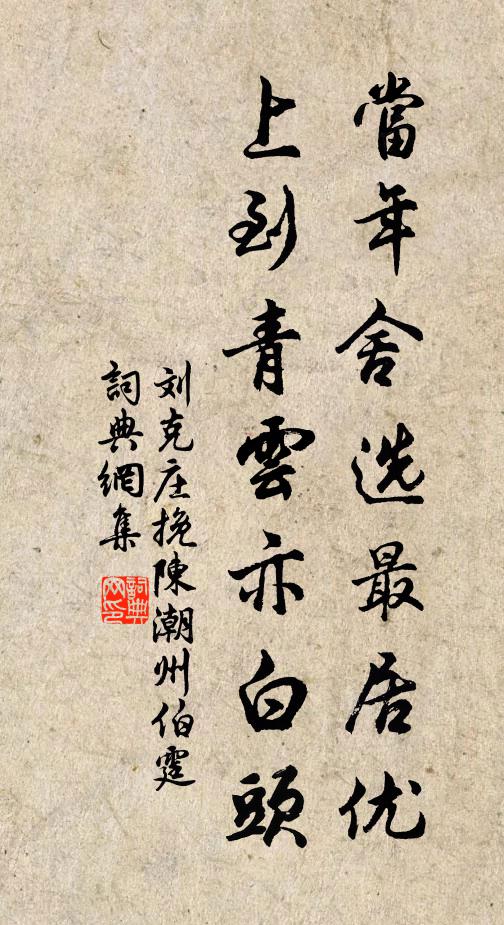 當年舍选最居优
上到青雲亦白頭
刘克庄挽陳潮州伯霆
詞典網集
詞典网印